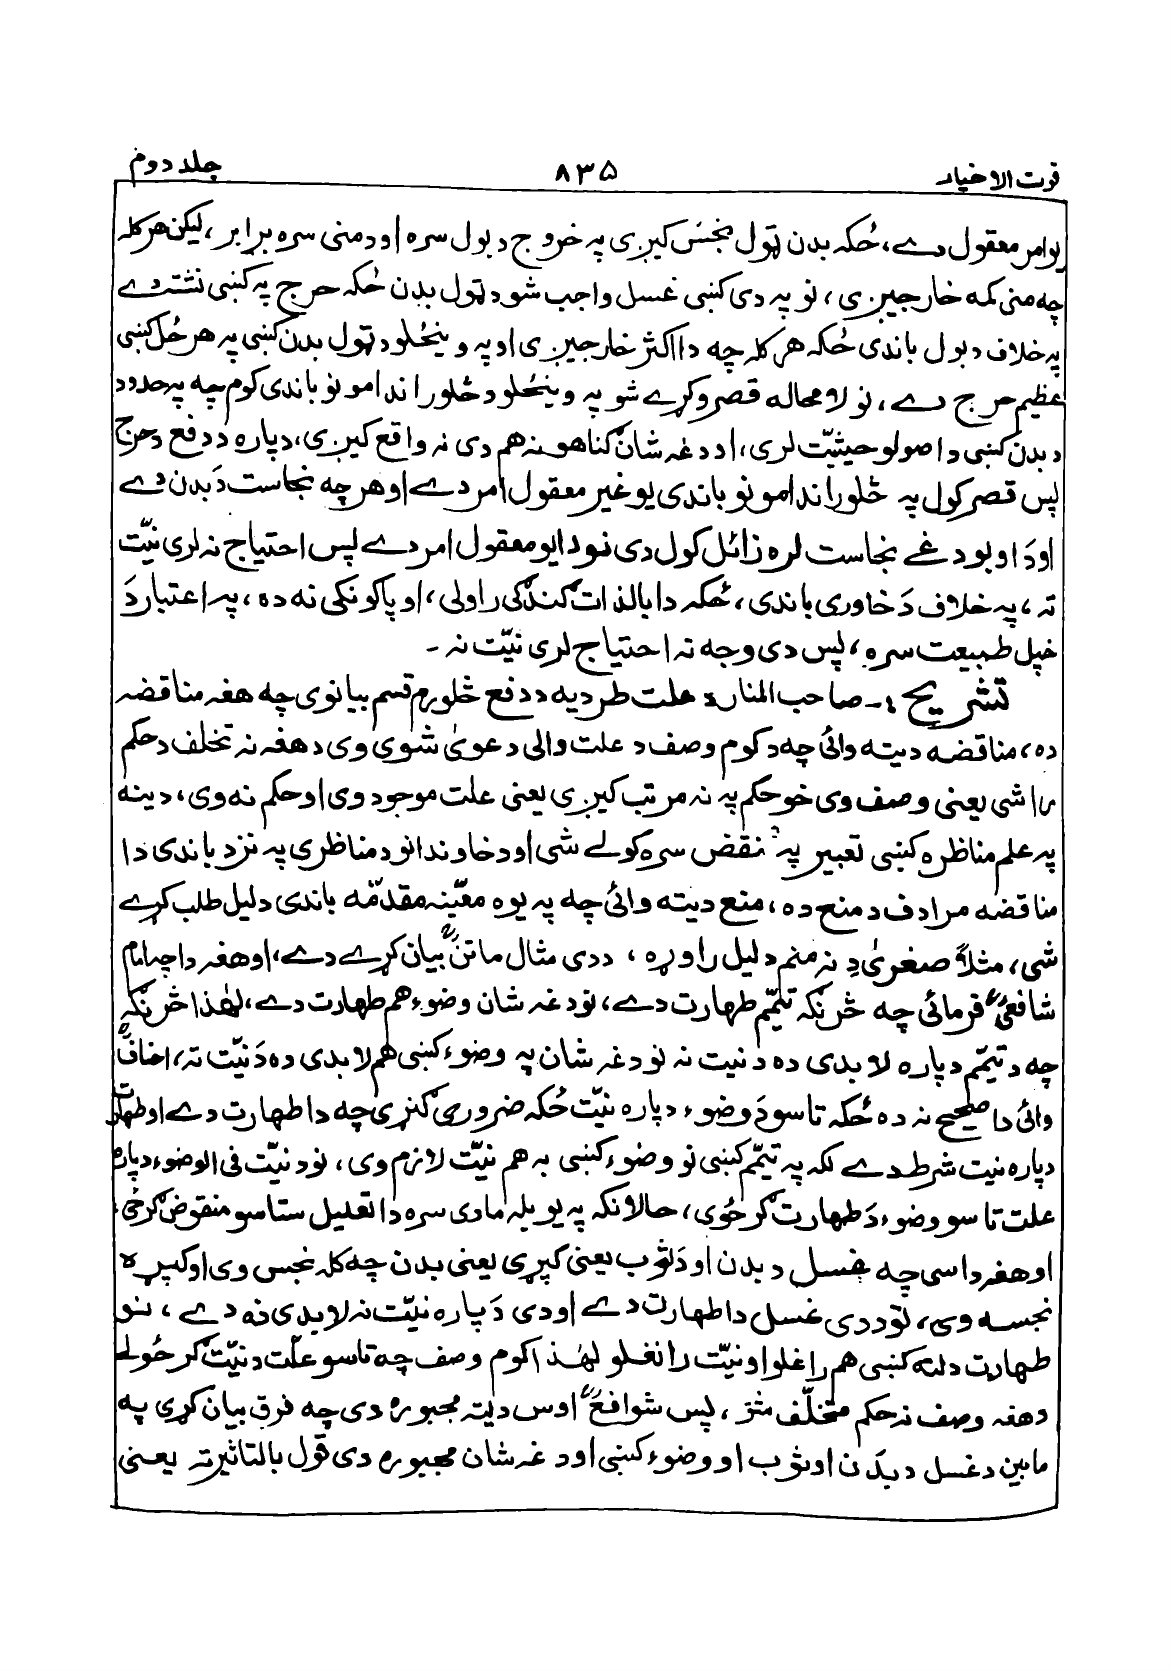 قوت الاخیار ۸۳۵ جلد دوم
یوامر معقول دے، ځکه بدن ټول نجس کیږی په خروج د بول سره او د منی سره برابر، لیکن هر کله
چه منی کمه خارجیږی، نو په دی کښی غسل واجب شو د ټول بدن ځکه حرج په کښی نشته دے
په خلاف د بول باندی ځکه هر کله چه دا اکثر خارجیږی او په وینځلو د ټول بدن کښی په هر ځل کښی
عظیم حرج دے، نو لا محاله قصر وکړے شو په وینځلو د څلور اندامونو باندی کوم چه په حدود
د بدن کښی د اصولو حیثیّت لری، او دغه شان ګناهونه هم دی نه واقع کیږی، دپاره د دفع د حرج
پس قصر کول په څلور اندامونو باندی یو غیر معقول امر دے او هر چه نجاست دَ بدن دے
اودَ اوبو دغے نجاست لره زائل کول دی نو دا یو معقول امر دے پس احتیاج نه لری نیّت
ته، په خلاف دَ خاوری باندی، ځکه دا بالذات ګندګی راولی، او پاکونکی نه ده، په اعتبار دَ
خپل طبیعت سره، پس دی وجه ته احتیاج لری نیّت نه ۔
تشریح :۔ صاحب المنار د علت طردیه د دفع څلورم قسم بیانوی چه هغه مناقضه
ده، مناقضه دیته وائی چه د کوم وصف د علت والی دعویٰ شوی وی د هغه نه تخلف د حکم
راشی یعنی وصف وی خو حکم په نه مرتب کیږی یعنی علت موجود وی او حکم نه وی، دینه
په علم مناظره کښی تعبیر په نقض سره کولے شی او د خاوندانو د مناظری په نزد باندی دا
مناقضه مرادف د منع ده، منع دیته وائی چه په یوه معیّنه مقدّمه باندی دلیل طلب کړے
شی، مثلاً صغریٰ دِ نه منم دلیل راوړه، ددی مثال ماتنؒ بیان کړے دے، او هغه دا چه امام
شافعیؒ فرمائی چه څرنګه تیمّم طهارت دے، نو دغه شان وضوء هم طهارت دے، لهٰذا څرنګه
چه د تیمّم دپاره لابدی ده د نیت نه نو دغه شان په وضوء کښی هم لابدی ده دَ نیّت نه، احنافؒ
وائی دا صحیح نه ده ځکه تاسو دَ وضوء دپاره نیّت ځکه ضروری ګڼړی چه دا طهارت دے او طهارت
دپاره نیت شرط دے لکه په تیمّم کښی نو وضوء کښی به هم نیّت لازم وی، نو د نیّت فی الوضوء دپاره
علت تاسو وضوء دَ طهارت ګرځوی، حالانکه په یو بله مادی سره دا تعلیل ستاسو منقوض ګرځی،
او هغه داسی چه غسل د بدن او دَ ثوب یعنی کپړی یعنی بدن چه کله نجس وی او کپړه
نجسه وی، نو ددی غسل دا طهارت دے او دی دَ پاره نیّت نه لابدی نه دے، نو
طهارت دلته کښی هم راغلو او نیّت رانغلو لهٰذا کوم وصف چه تاسو علّت د نیّت ګرځولے
دهغه وصف نه حکم متخلّف شو، پس شوافعؒ اوس دیته مجبوره دی چه فرق بیان کړی په
مابین د غسل د بدن او ثوب او وضوء کښی او دغه شان مجبوره دی قول بالتاثیر ته یعنی